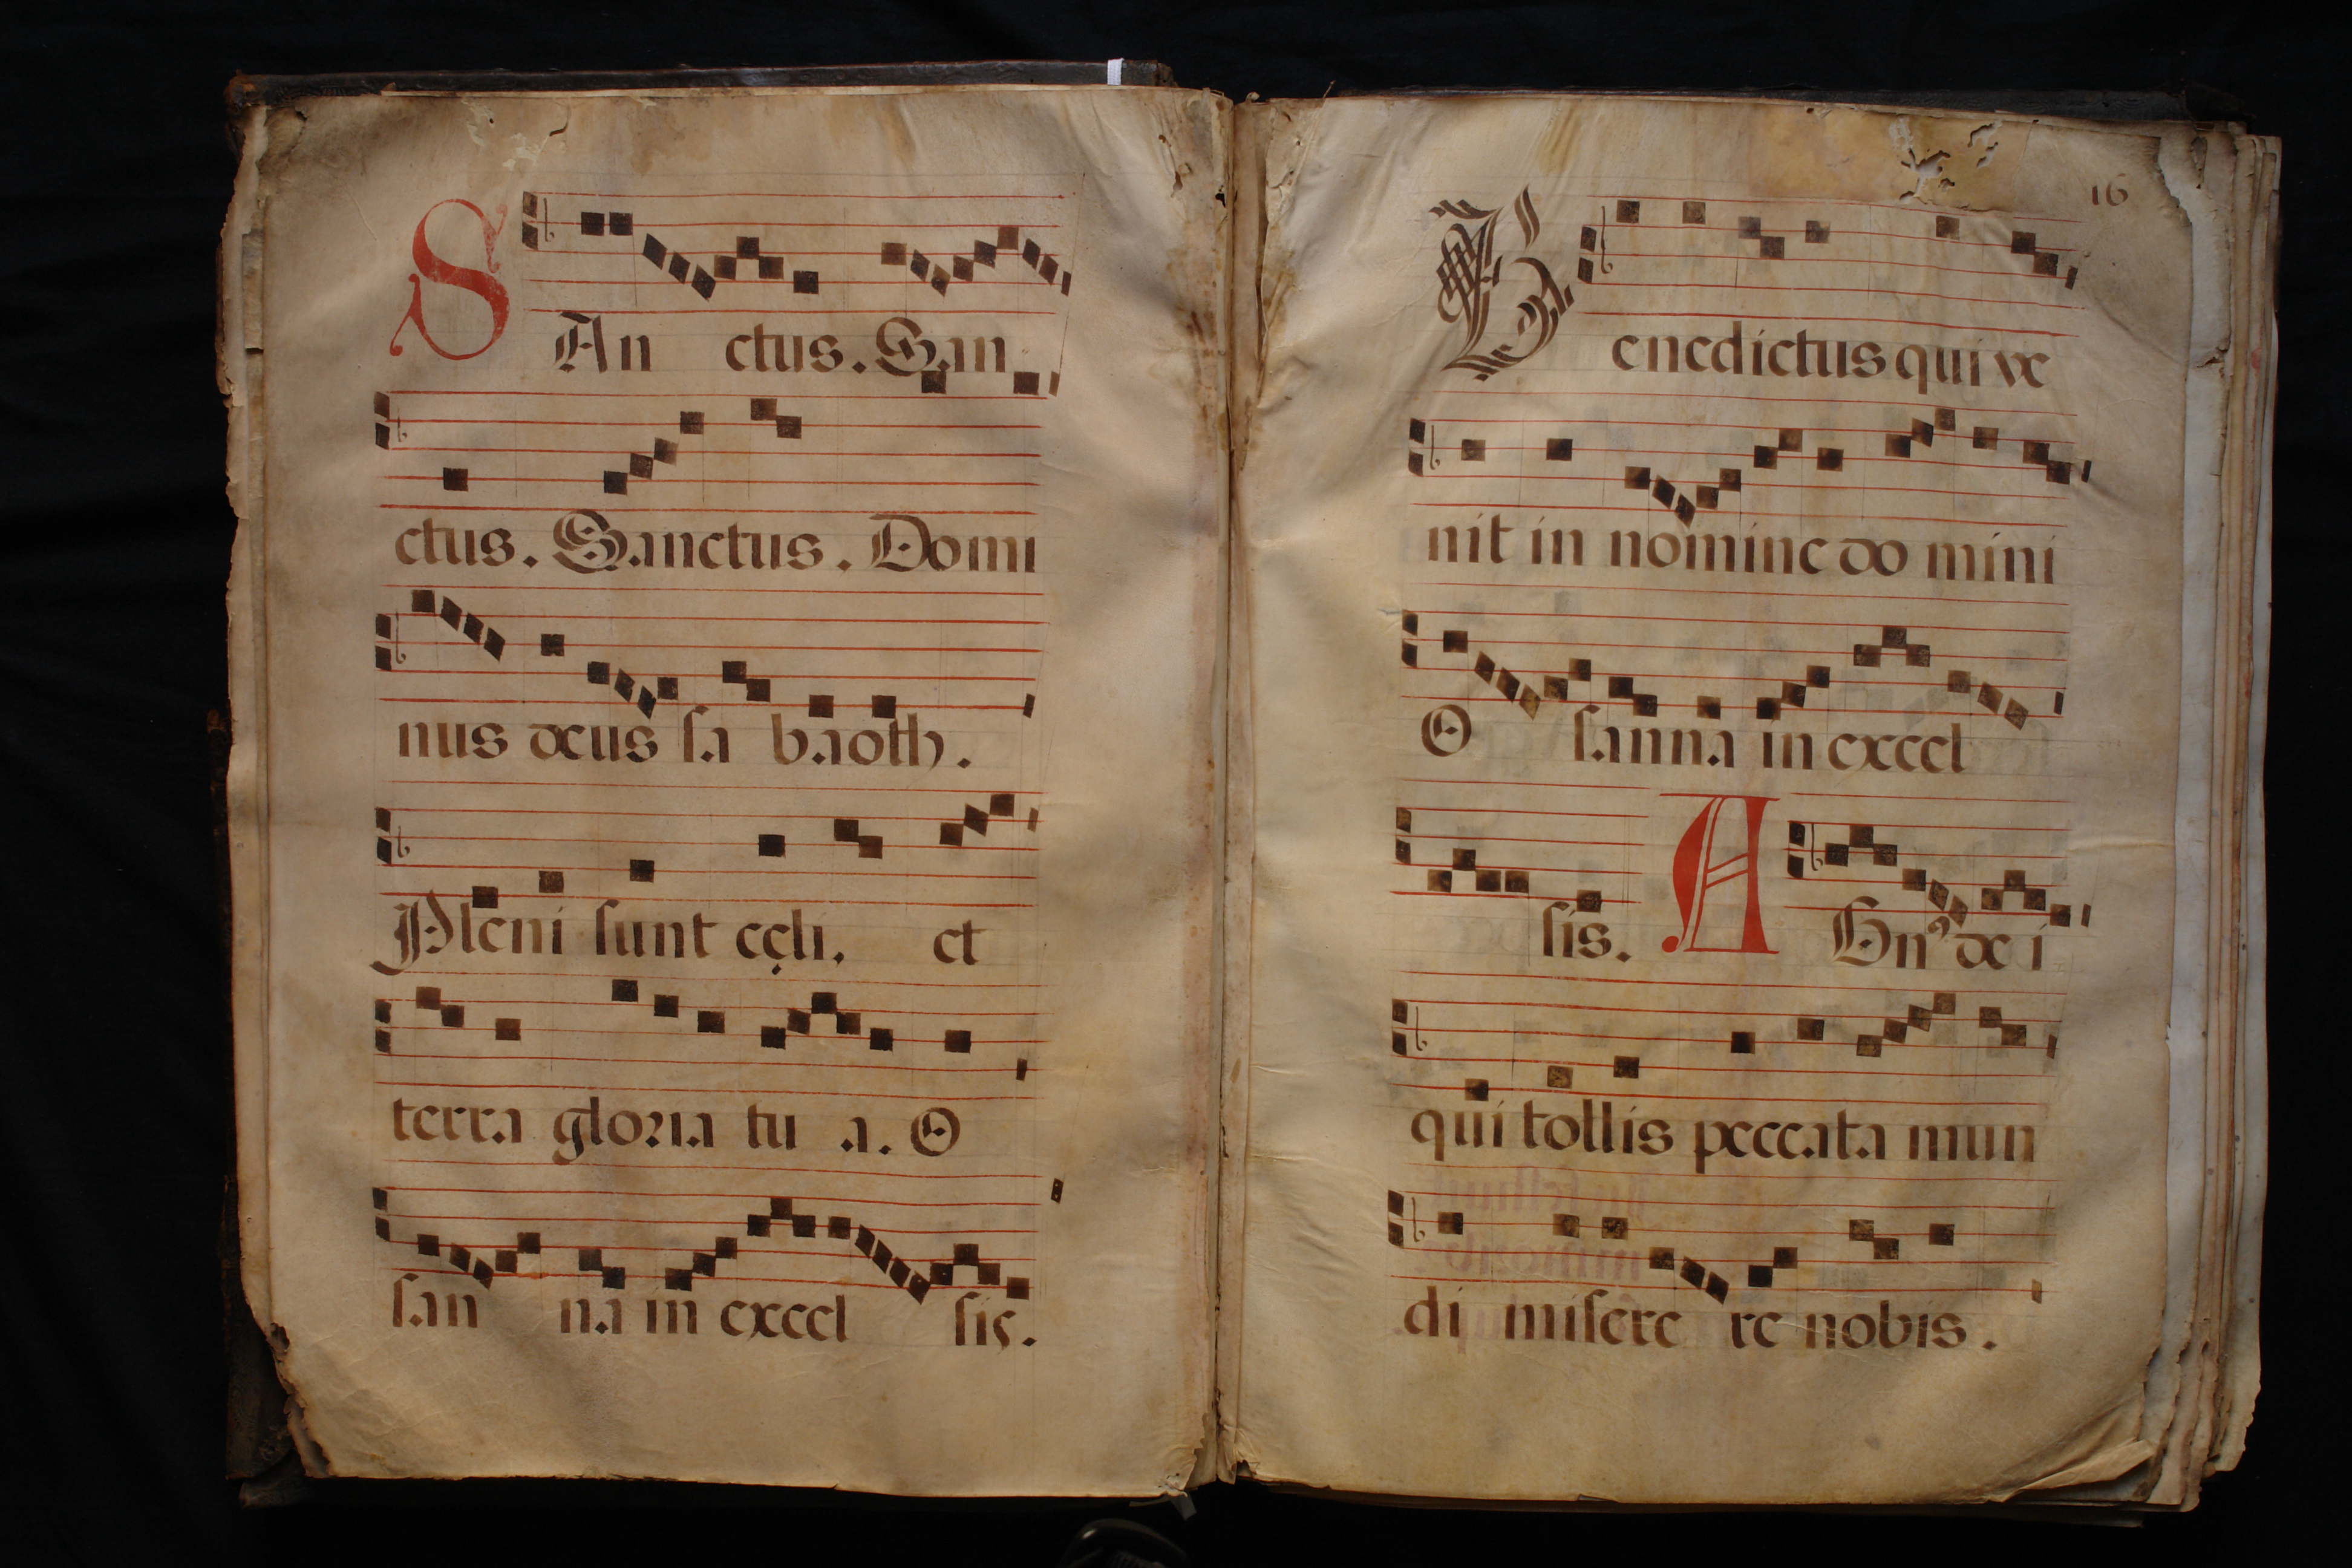 SAn ctus. San
ctus. Sanctus. Domi
nus deus ſa baoth.
Pleni ſunt cęli. et
terra gloria tu a. O
ſan na in excel ſis.
16
Benedictus qui ve
nit in nomine do mini
O ſanna in excel
ſis. AGnꝰ de i
qui tollis peccata mun
di miſere re nobis.